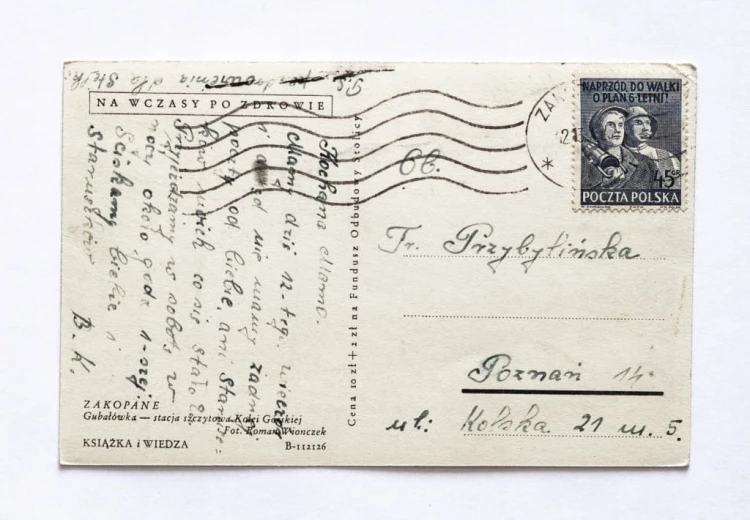 P.S. pozdrowienia dla
NA WCZASY PO ZDROWIE
Kochana Mamo.
Mamy dziś 12-tego, wieczór
i nie mamy żadnej
poczty od Ciebie, ani Starusz=
ków. niech co się stało?
Przyjeżdżamy w sobotę w
nocy około godz 1-szej
Ściskamy Ciebie i
Staruszków
B. K.
ZAKOPANE
Gubałówka — stacja szczytowa Kolei Górskiej
Fot. Roman Wionczek
KSIĄŻKA i WIEDZA B-112126
Cena 10 zł + 2 zł na Fundusz Odbudowy Stolicy
ZA
NAPRZÓD, DO WALKI
O PLAN 6-LETNI!
45 GR
POCZTA POLSKA
Fr. Przybylińska
Poznań 14.
ul: Kolska 21 m. 5.